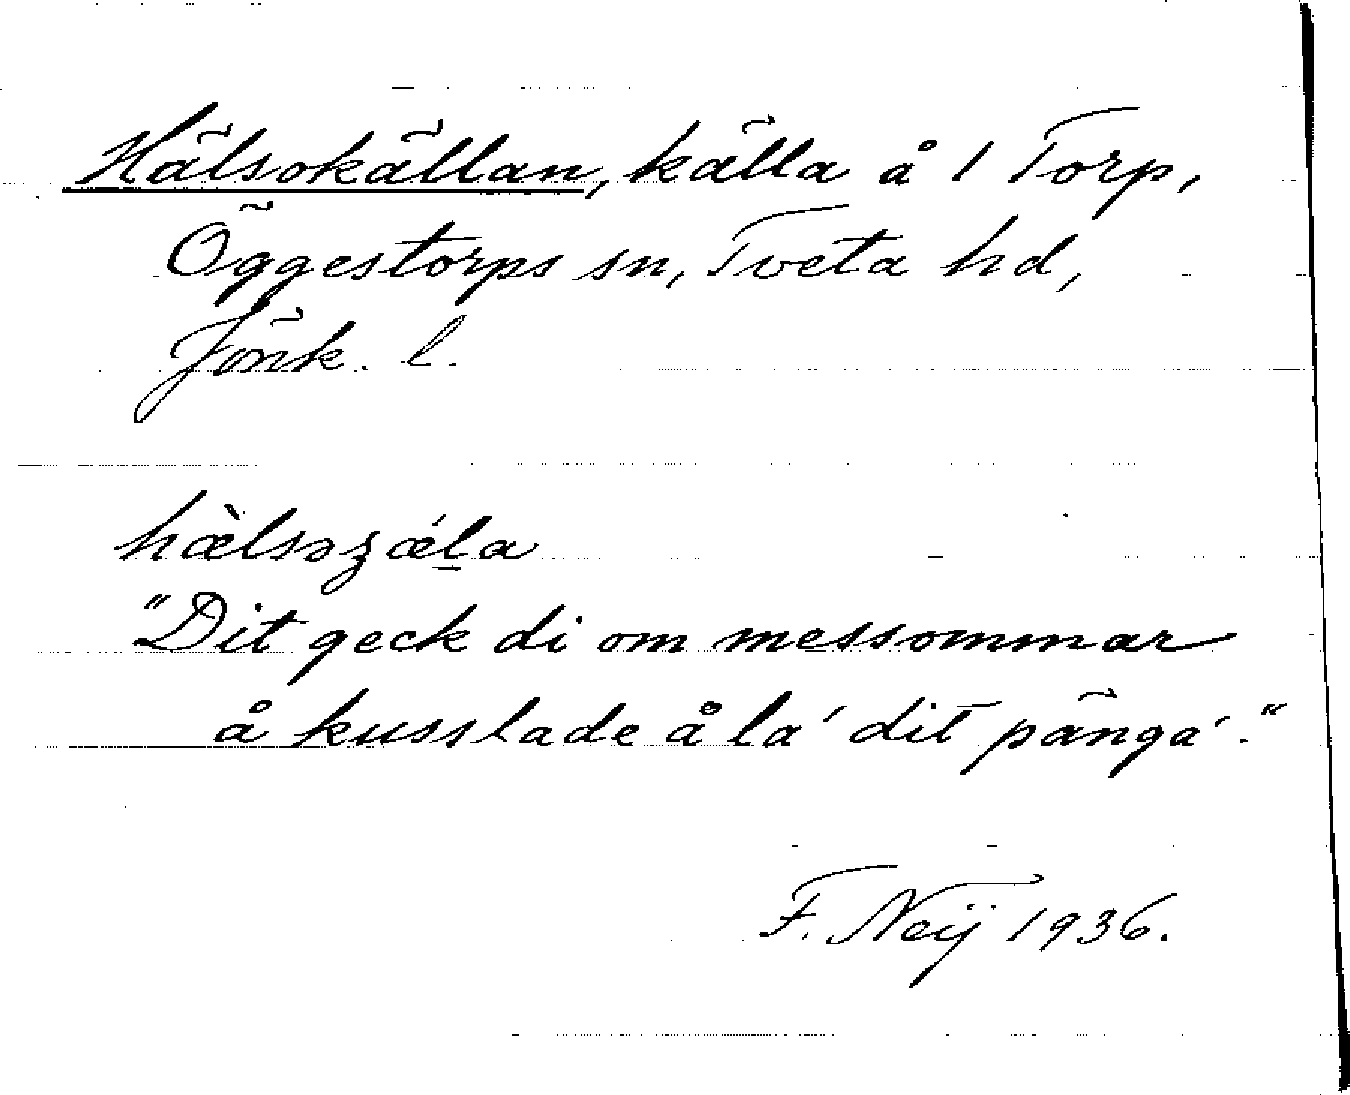 Hälsokällan, källa å 1 Torp,
Öggestorps sn, Tveta hd,
Jönk. l.
hæ̀lsɔʒǽl̠a
"Dit geck di om messommar
å kusslade å la' dit pänga'."
F. Neij 1936.